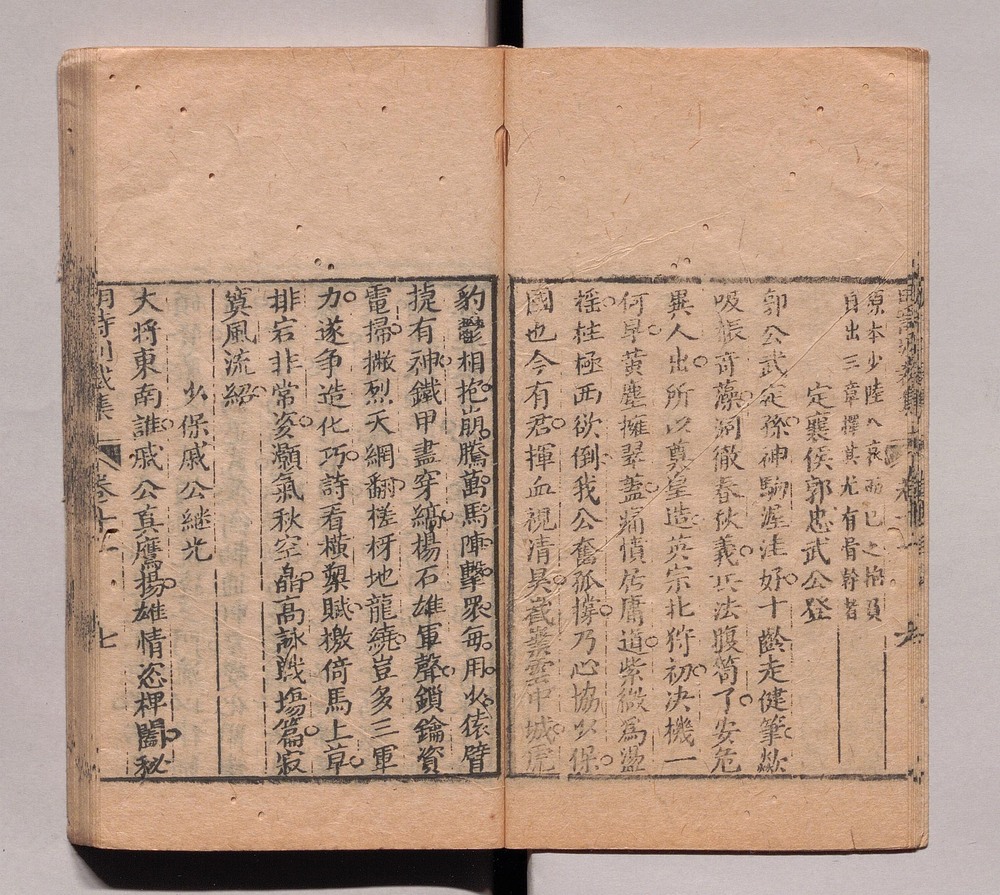 原本少陵八哀而已之拍員
自出三章擇其尤有骨幹者
定襄侯郭忠武公登
郭公武定孫神駒渥洼好十齡走健筆歘
吸振奇藻洞徹春秋義兵法腹笥了安危
異人出所以奠皇造英宗北狩初决機一
何早黃塵擁翠蓋痛憤居庸道紫微為盪
搖柱極西欲倒我公奮孤撐乃心協少保
國也今有君揮血視清昊巀嶪雲中城虎
豹鬱相抱崩騰萬馬陣擊眾每用少猿臂
㨗有神鐵甲盡穿縞楊石雄軍聲鎖鑰資
電掃撇烈天網翻槎枒地龍繞豈多三軍
力遂爭造化巧詩看橫槊賦檄倚馬上草
排宕非常姿灝氣秋空皛高詠戰塲篇寂
寞風流紹
少保戚公継光
大將東南誰戚公真鷹揚雄情恣椑闔秘
明詩別裁集 卷十一 七